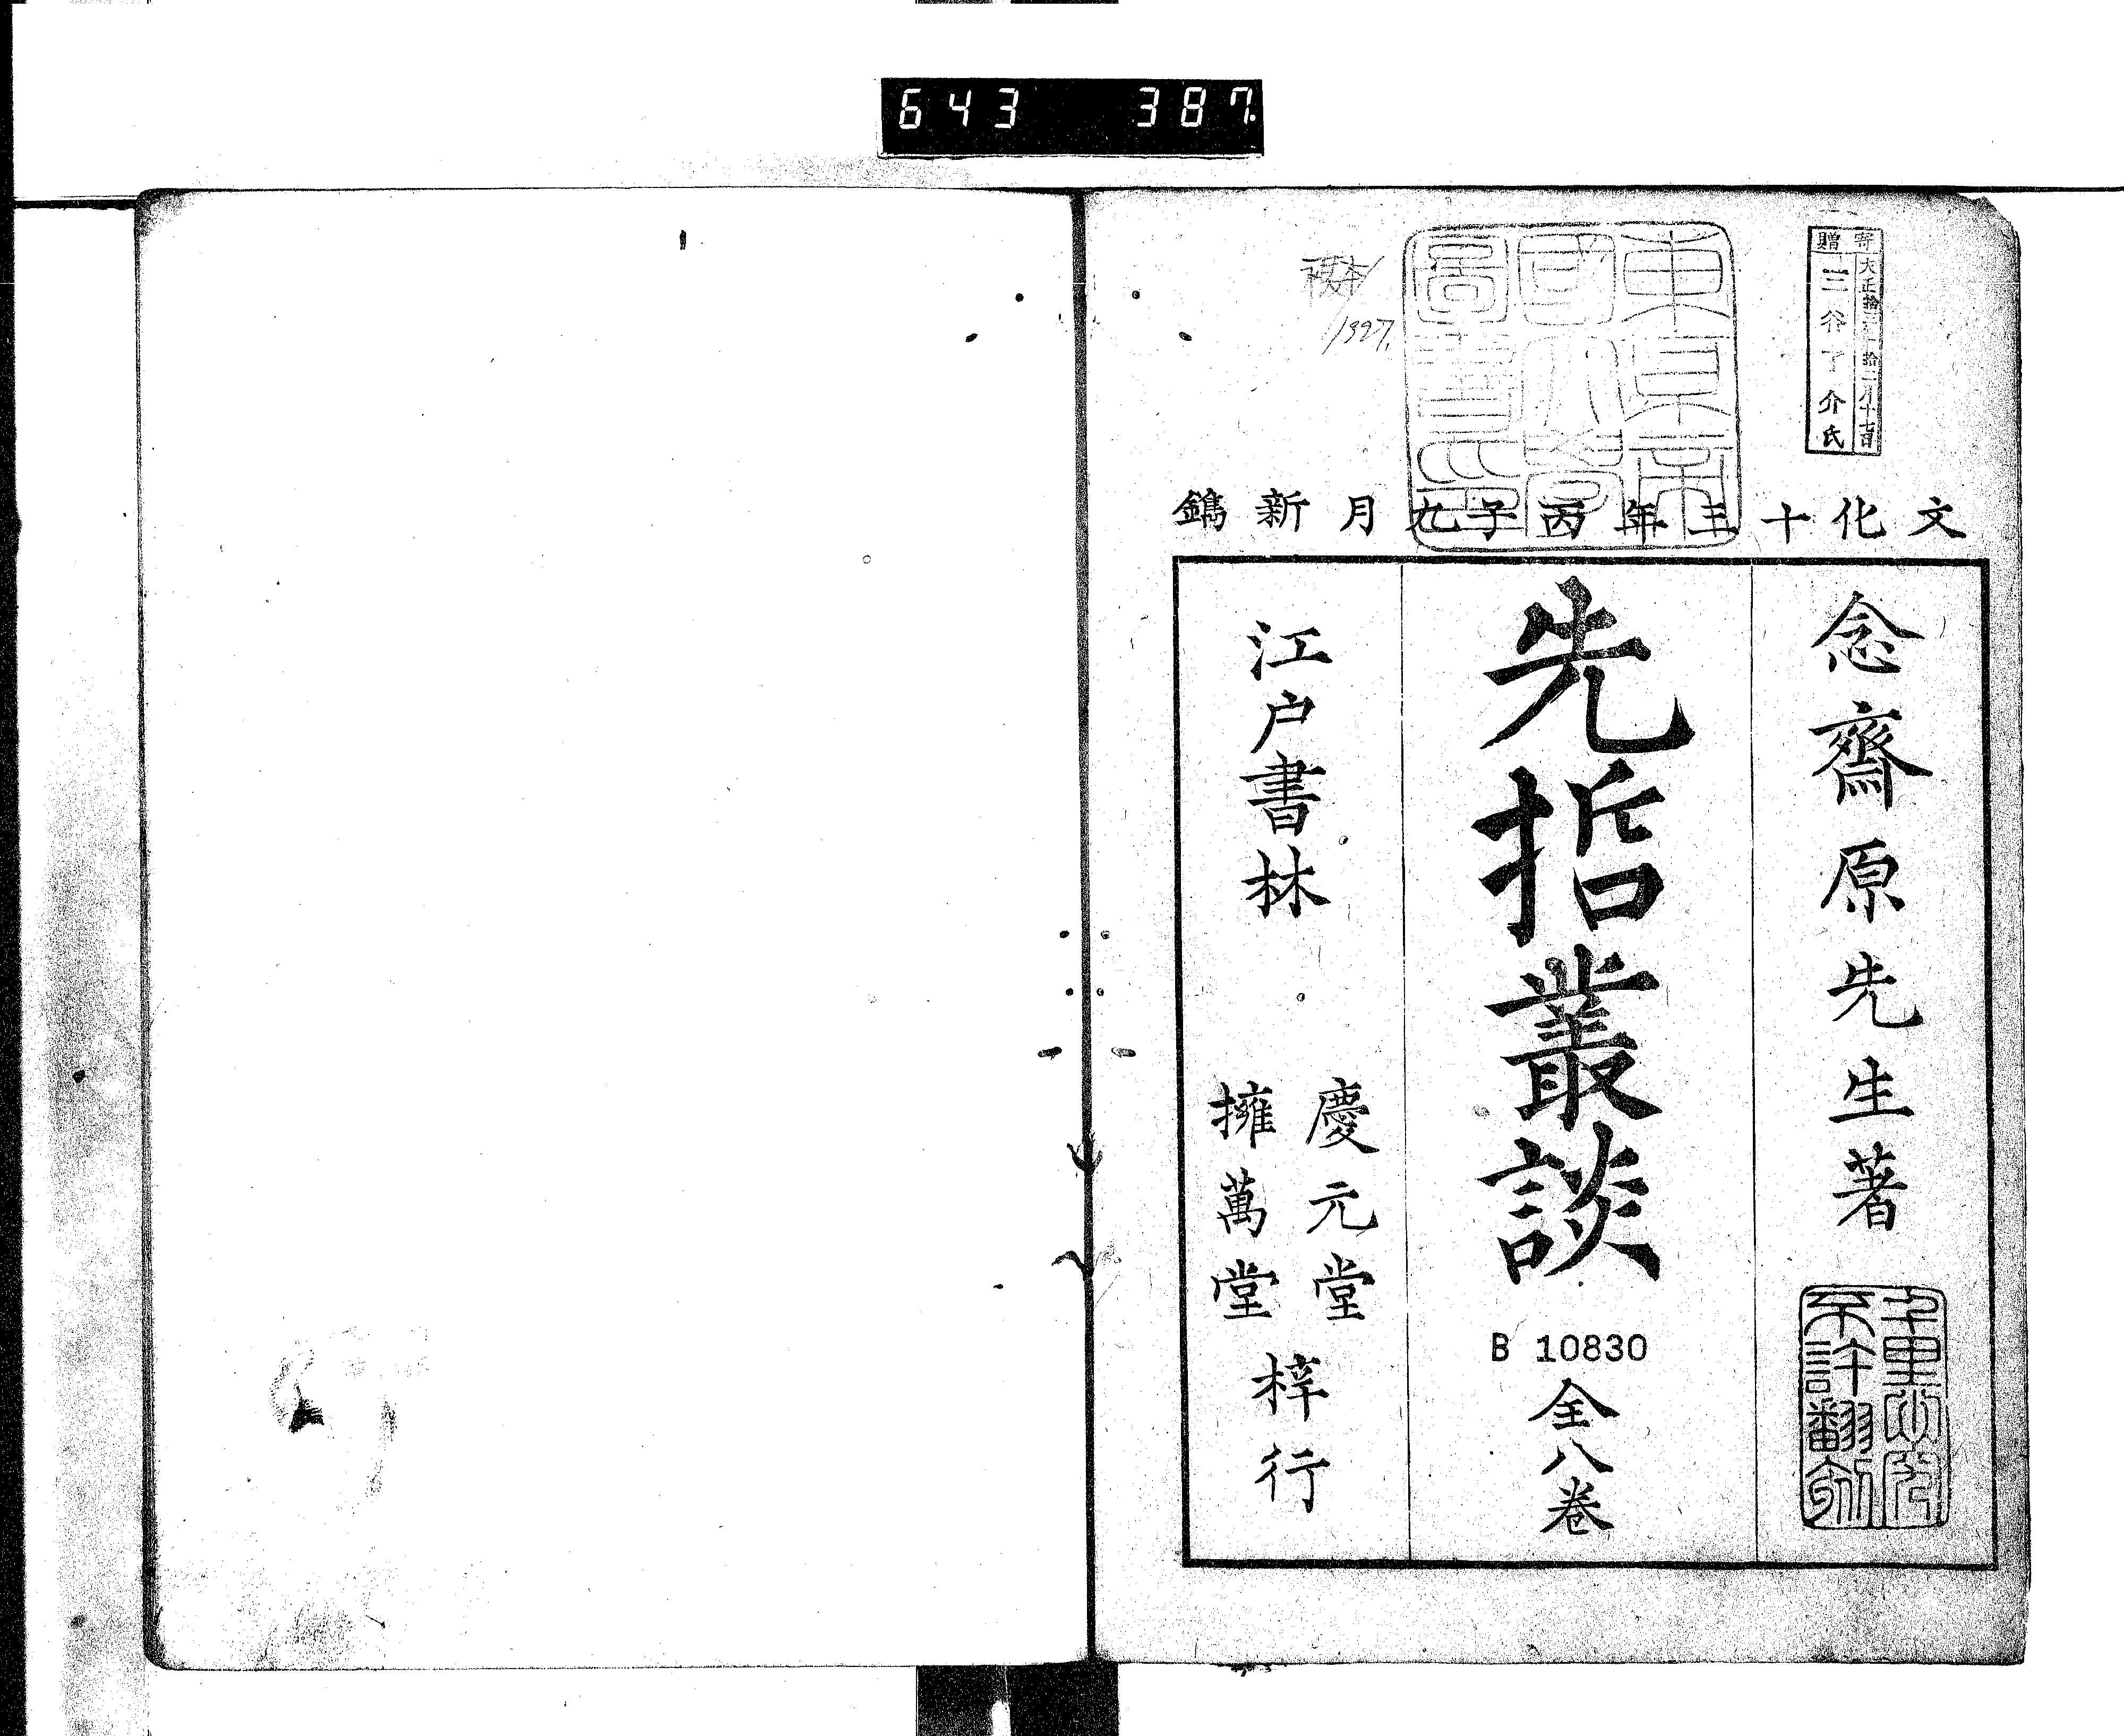 643 387.
寄贈
大正拾三年拾二月十七日
三谷了介氏
東京帝
国大學
圖書印
1397.
文化十三年丙子九月新鐫
念齋原先生著
千里必究
不許翻刻
先哲叢談
B 10830
全八巻
江戸書林
慶元堂
擁萬堂
梓行